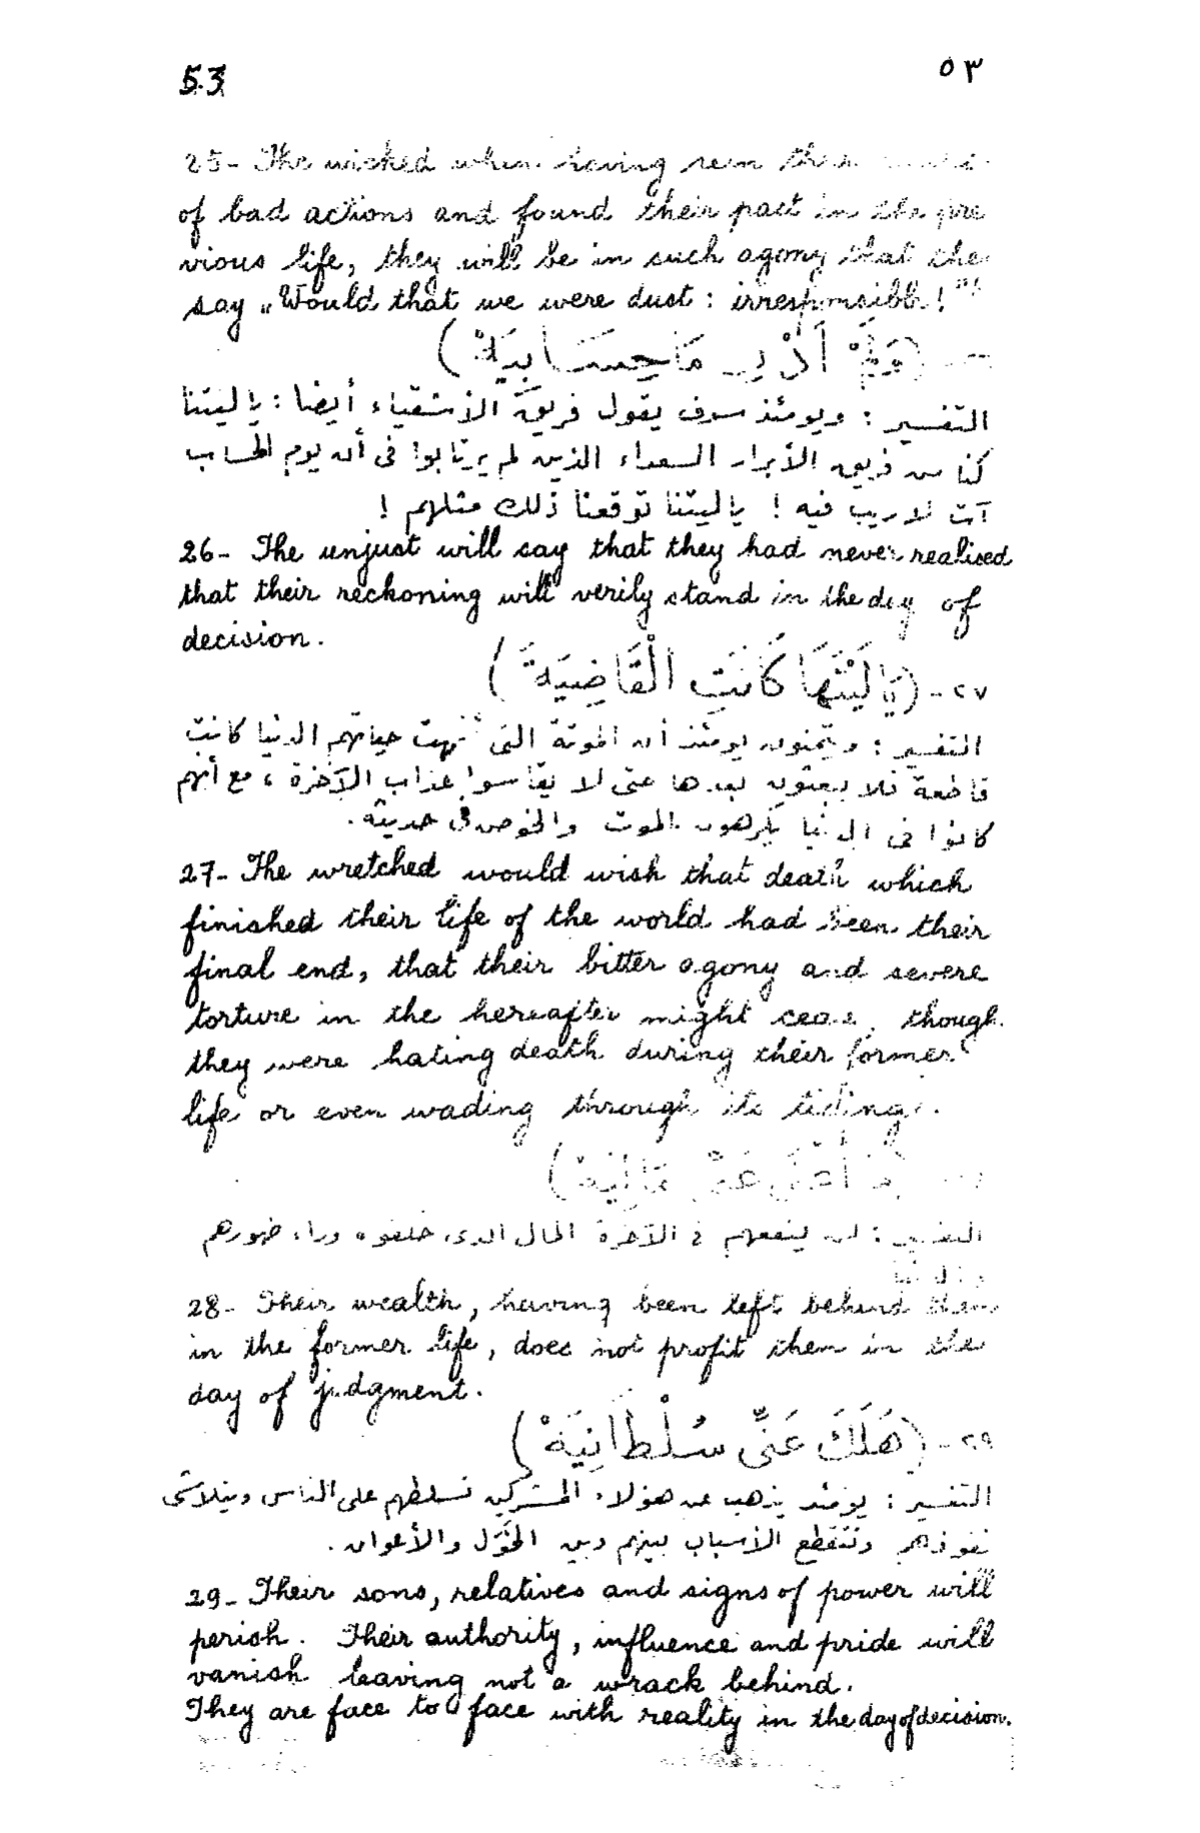 53 ٥٣
25- The wicked when having seen
of bad actions and found their part in the pre
vious life, they will be in such agony that the
say „Would that we were dust: irresponsible!"
(وَلَمْ أَدْرِ مَا حِسَابِيَهْ)
التفسير : ويومئذ سوف يقول فريق الأشقياء أيضا : ياليتنا
كنا من فريق الأبرار السعداء الذين لم يرتابوا فى أن يوم الحساب
آت لا ريب فيه ! ياليتنا توقعنا ذلك مثلهم !
26- The unjust will say that they had never realised
that their reckoning will verily stand in the day of
decision.
٢٧- (يَا لَيْتَهَا كَانَتِ الْقَاضِيَةَ)
التفسير : ويتمنون يومئذ أن الموتة التى أنهت حياتهم الدنيا كانت
قاطعة فلا يبعثون بعدها حتى لا يقاسوا عذاب الآخرة ، مع أنهم
كانوا فى الدنيا يكرهون الموت والخوض فى حديثه .
27- The wretched would wish that death which
finished their life of the world had been their
final end, that their bitter agony and severe
torture in the hereafter might cease, though
they were hating death during their former
life or even wading through its tidings.
(مَا أَغْنَى عَنِّى مَالِيَهْ)
التفسير : لن ينفعهم فى الآخرة المال الذى خلفوه وراء ظهورهم
28- Their wealth, having been left behind them
in the former life, does not profit them in the
day of judgment.
٢٩- (هَلَكَ عَنِّى سُلْطَانِيَهْ)
التفسير : يومئذ يذهب عن هؤلاء المشركين تسلطهم على الناس ويتلاشى
نفوذهم وتتقطع الأسباب بينهم وبين الخَوَل والأعوان .
29- Their sons, relatives and signs of power will
perish. Their authority, influence and pride will
vanish leaving not a wrack behind.
They are face to face with reality in the day of decision.